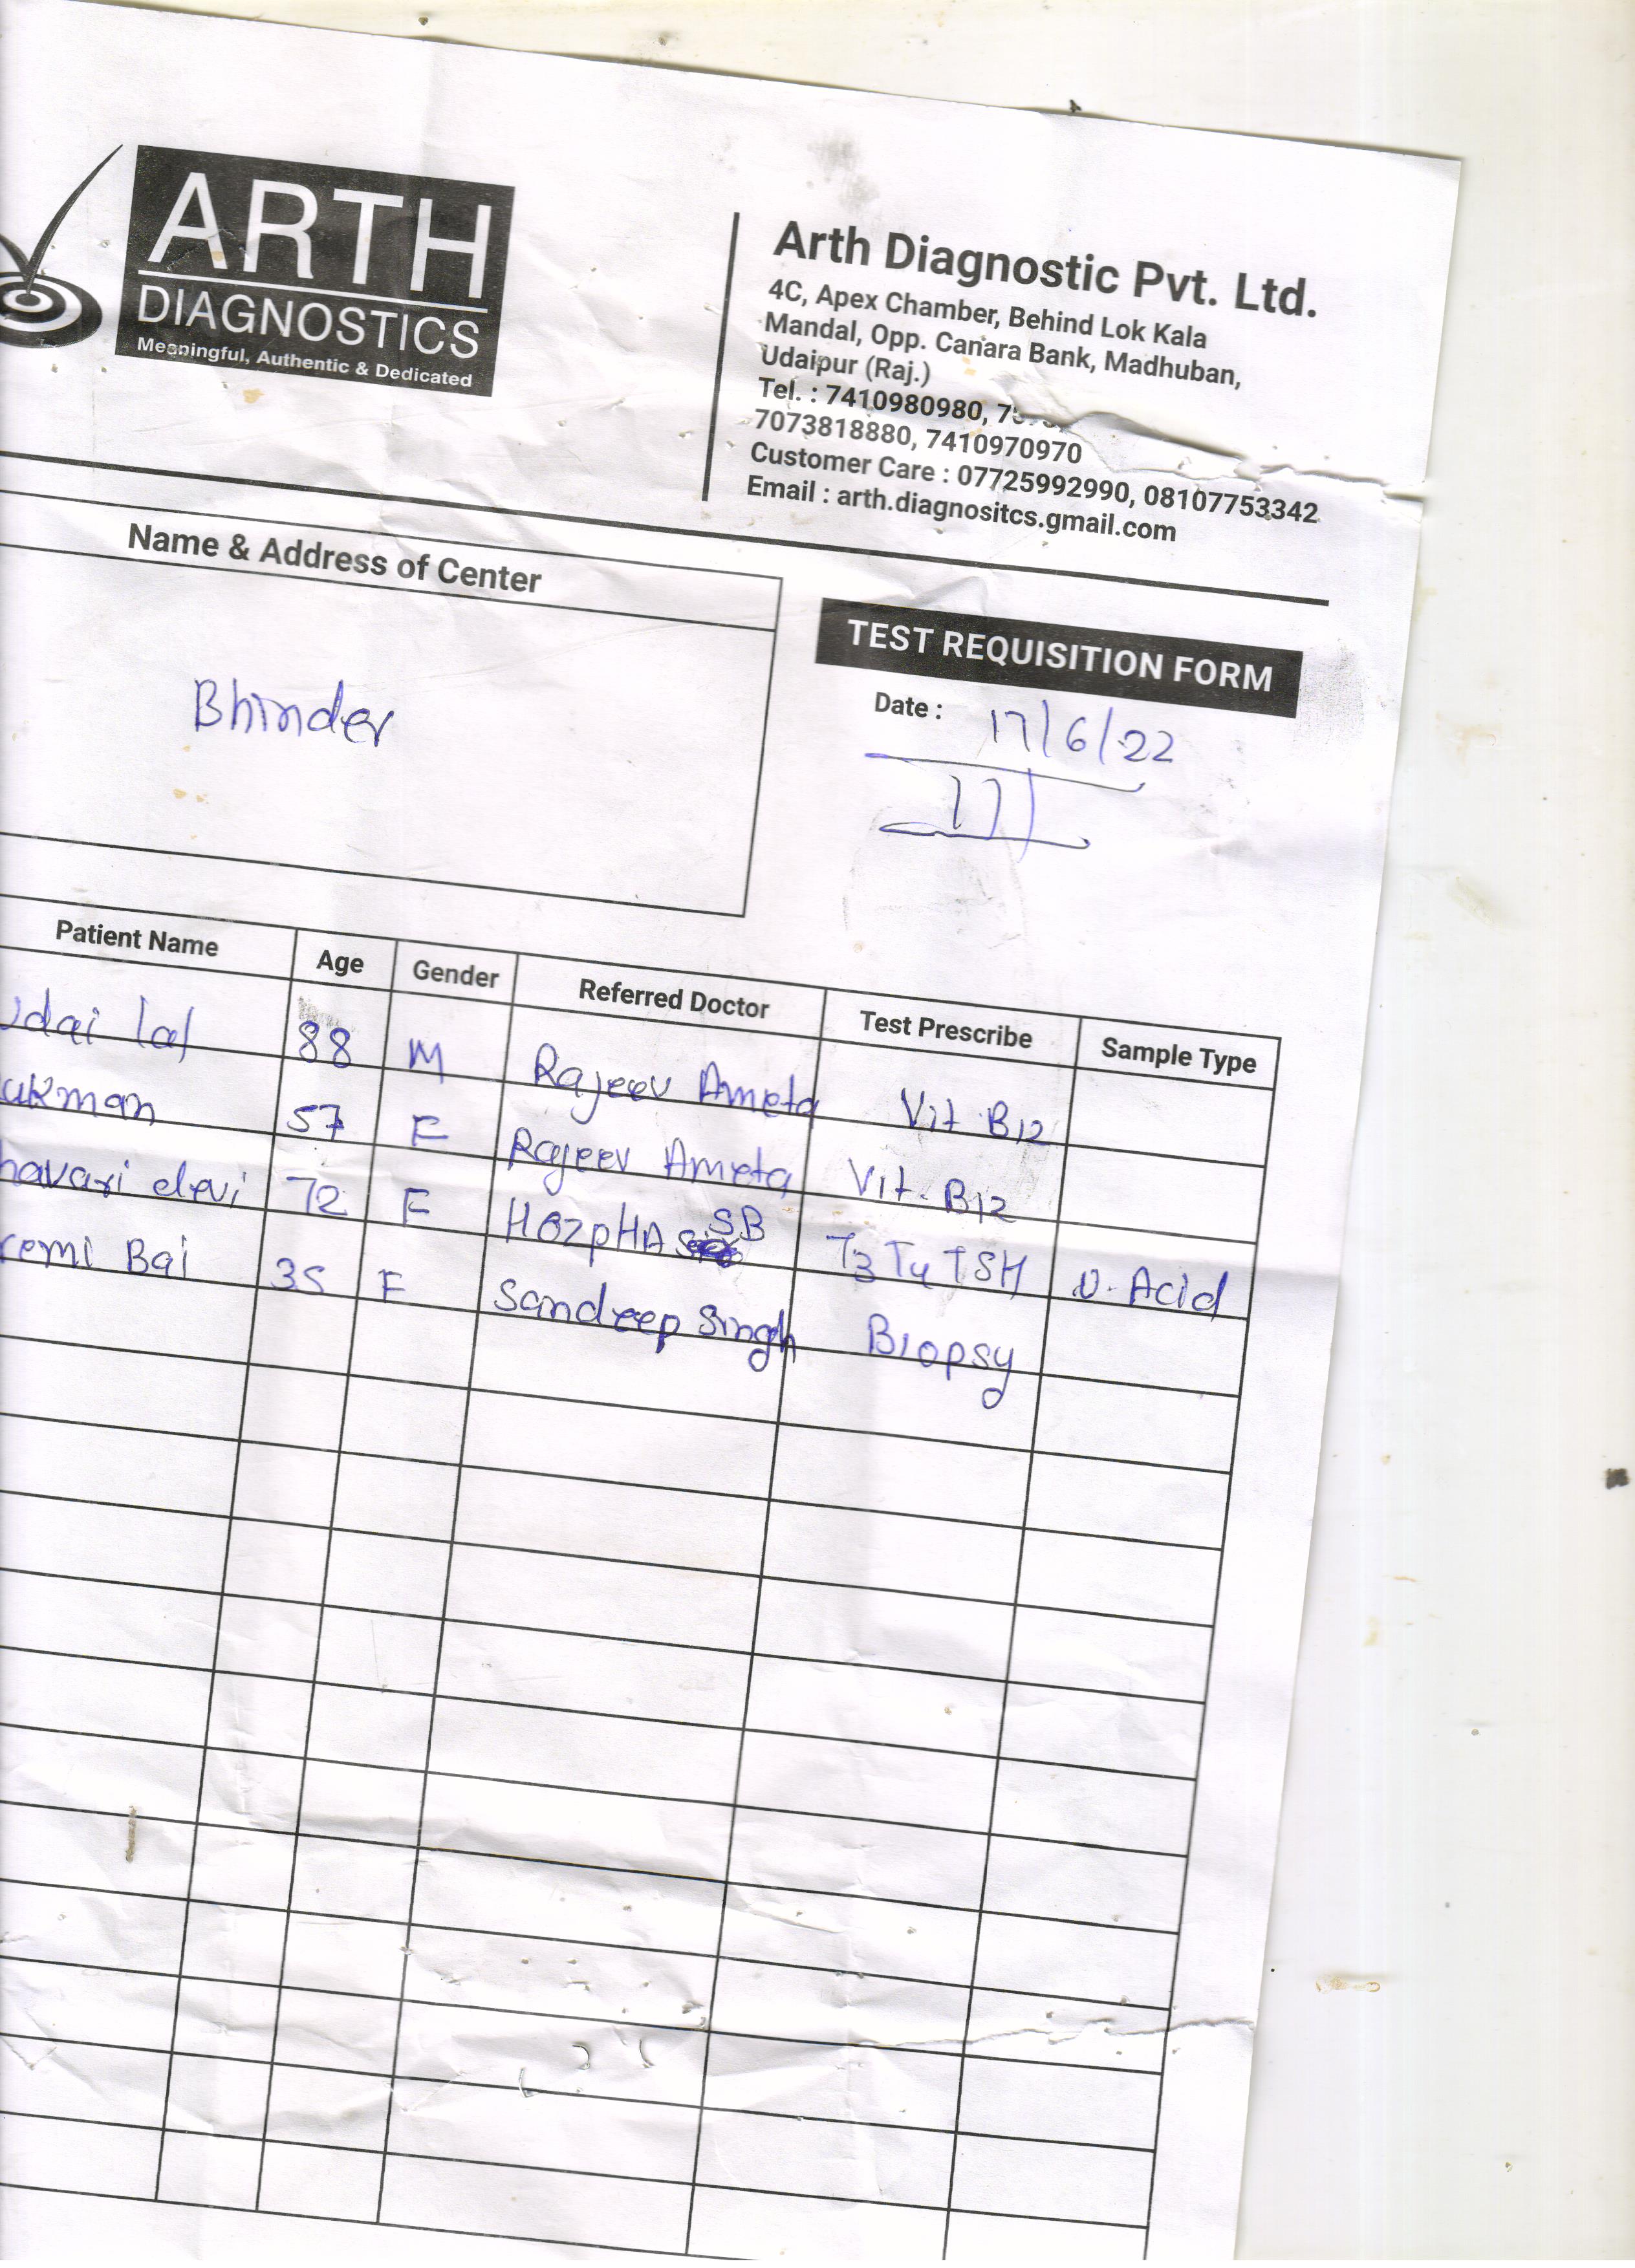 ARTH
DIAGNOSTICS
Meaningful, Authentic & Dedicated
Arth Diagnostic Pvt. Ltd.
4C, Apex Chamber, Behind Lok Kala
Mandal, Opp. Canara Bank, Madhuban,
Udaipur (Raj.)
Tel. : 7410980980,
7073818880, 7410970970
Customer Care : 07725992990, 08107753342
Email : arth.diagnositcs.gmail.com
Name & Address of Center
Bhinder
TEST REQUISITION FORM
Date : 17/6/22
Patient Name Age Gender Referred Doctor Test Prescribe Sample Type
udai lal 88 M Rajeev Ameta Vit B12
ukman 57 F Rajeev Ameta Vit. B12
havari devi 72 F SB T3 T4 TSH U. Acid
remi Bai 35 F Sandeep Singh Biopsy